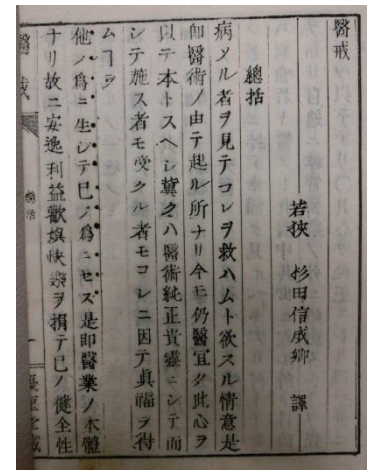 醫戒
若狹 杉田信成卿 譯
總括
病メル者ヲ見テコレヲ救ハムト欲スル情意是
即醫術ノ由テ起ル所ナリ今モ仍醫宜ク此心ヲ
以テ本トスヘシ冀クハ醫術純正貴靈ニシテ而
シテ施ス者モ受クル者モコレニ因テ眞福ヲ得
ムヿヲ
他ノ爲ニ生シテ己ノ爲ニセズ是即醫業ノ本體
ナリ故ニ安逸利益歡娯快樂ヲ捐テ己ノ健全性
醫戒
總括
一